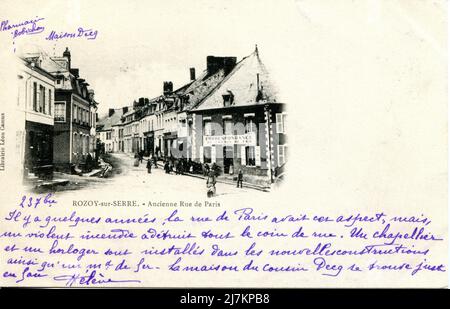 Pharmacie
Bobichon
Maison Decq
Librairie Léon Camus
CORRESPONDANCE
ROZOY-sur-SERRE. — Ancienne Rue de Paris
237 bis
Il y a quelques années la rue de Paris avait cet aspect, mais,
un violent incendie a détruit tout le coin de rue. Un chapellier
et un horloger sont installés dans les nouvelles constructions
ainsi qu'un md de fer - La maison du cousin Decq se trouve juste
en face Hélène
alamy
Image ID: 2J7KPB8
www.alamy.com